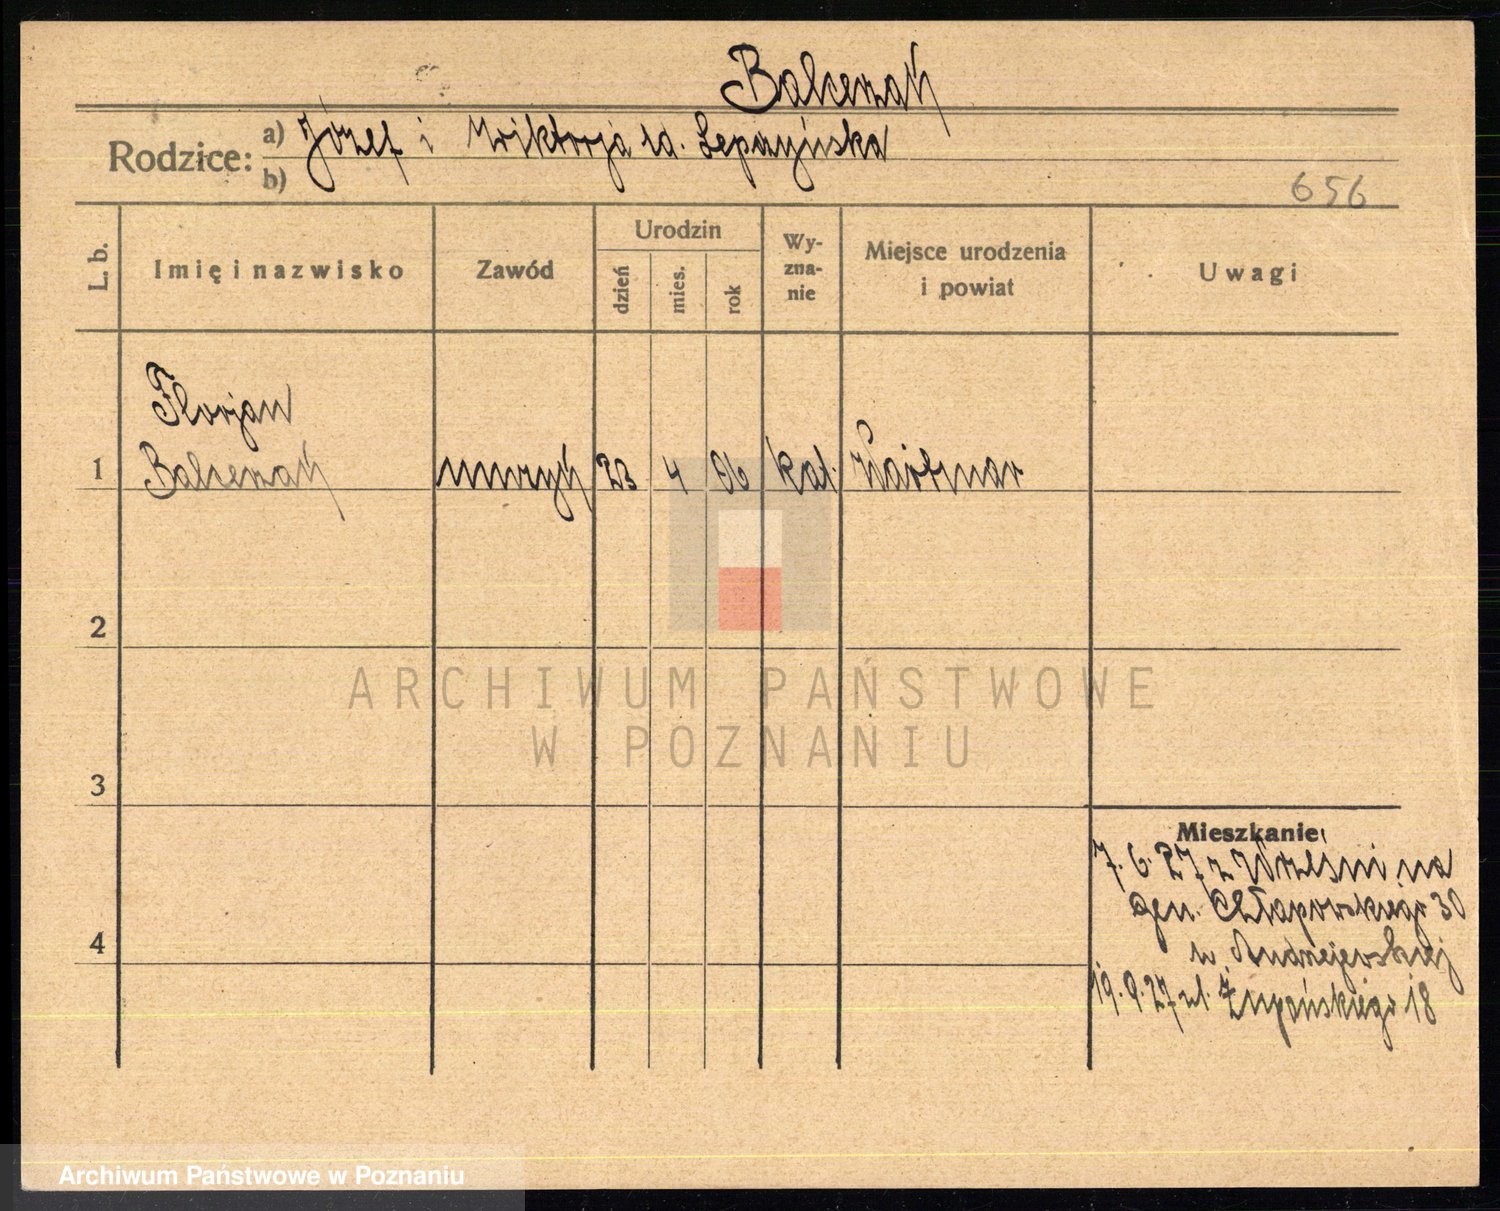 Balcerzak
Rodzice: a) Józef i Wiktorja
b)
656
L. b.
Imię i nazwisko
Zawód
Urodzin
dzień
mies.
rok
Wy-
zna-
nie
Miejsce urodzenia
i powiat
Uwagi
Florjan
1 Balcerzak 23 4 06 kat.
2
3
4
Mieszkanie:
7. 6. 27 z Wrześni na
gen. Chłapowskiego 30
u Andrzejewskiej
19. 9. 27 ul. Żupańskiego 18
ARCHIWUM PAŃSTWOWE
W POZNANIU
Archiwum Państwowe w Poznaniu